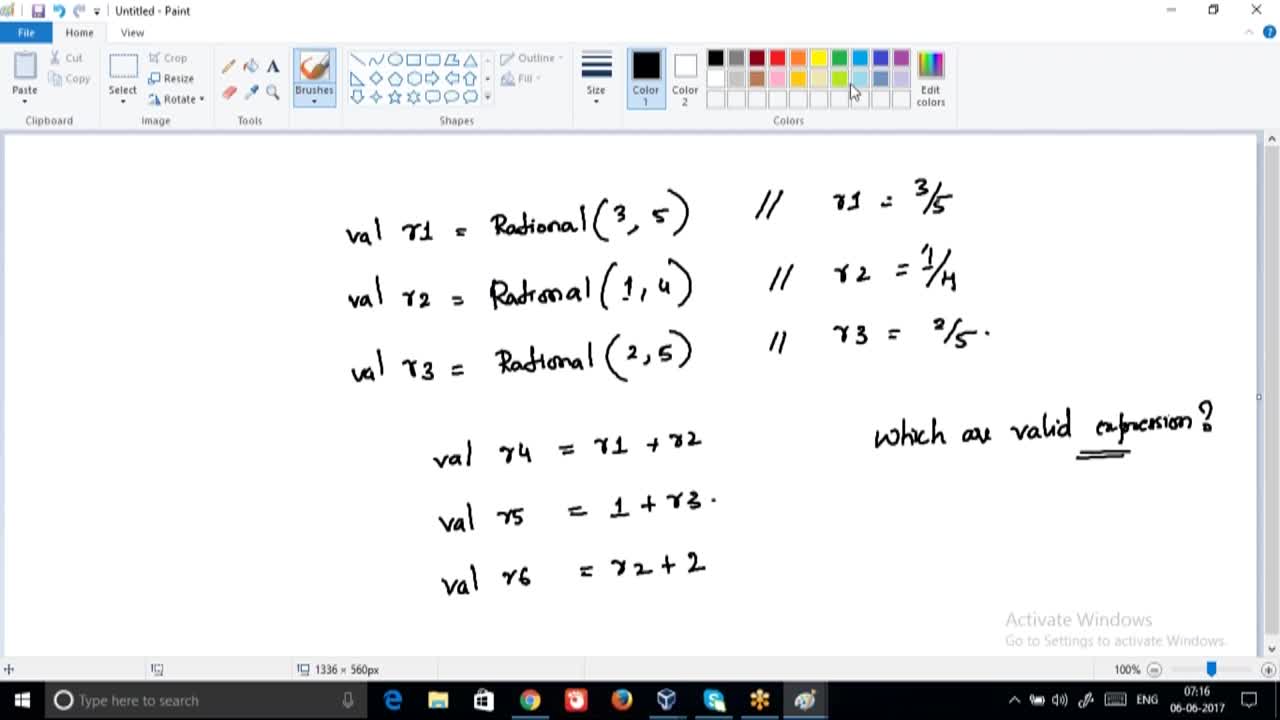 Untitled - Paint
File Home View
Paste Cut Copy Clipboard
Select Crop Resize Rotate Image
Tools
Brushes
Outline Fill Shapes
Size
Color 1 Color 2 Edit colors Colors
val r1 = Rational(3, 5) // r1 = 3/5
val r2 = Rational(1, 4) // r2 = 1/4
val r3 = Rational(2, 5) // r3 = 2/5.
val r4 = r1 + r2
which are valid expression?
val r5 = 1 + r3.
val r6 = r2 + 2
Activate Windows
Go to Settings to activate Windows.
1336 × 560px 100%
Type here to search ENG 07:16
06-06-2017